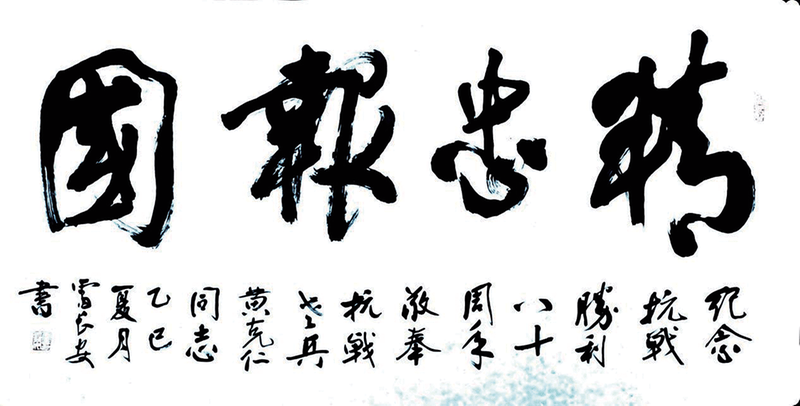 精忠報國
纪念
抗戰
勝利
八十
周年
敬奉
抗戰
老兵
黄克仁
同志
乙巳
夏月
雷长安
書